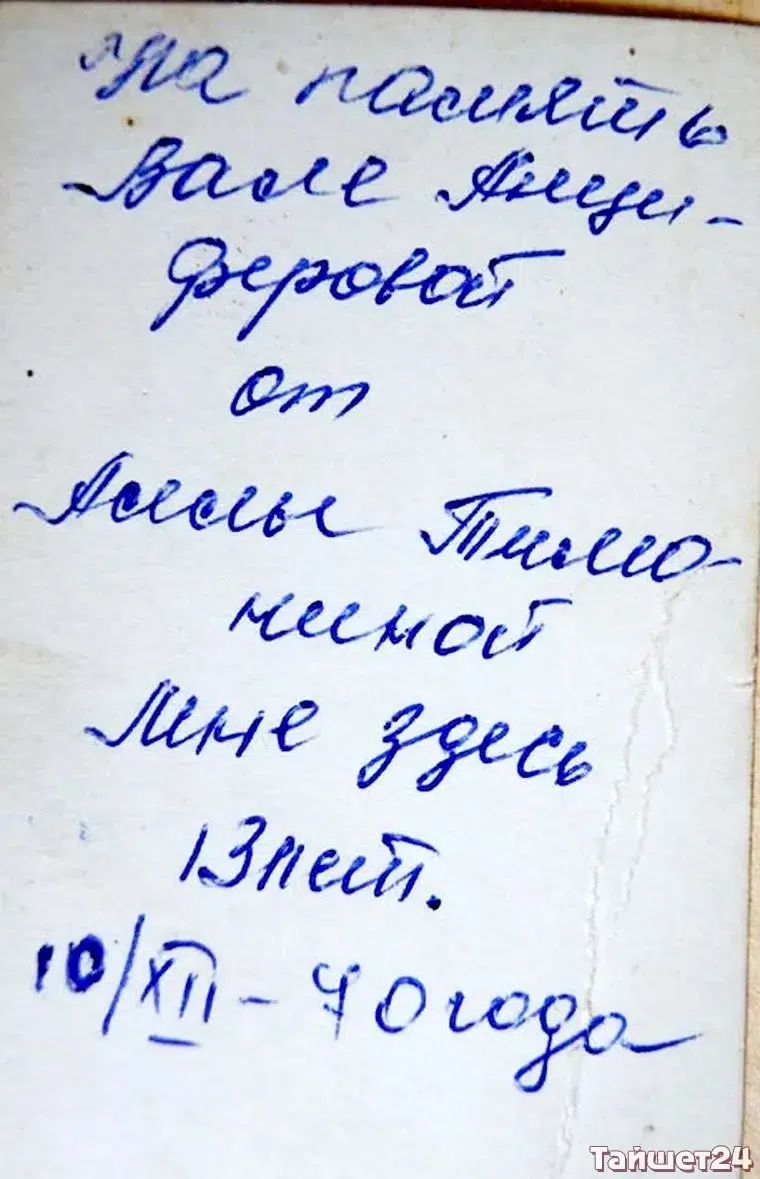 На память
Вале Анци-
феровой
от
Аллы Тимо-
ниной
Мне здесь
13 лет.
10/XII - 70 года
Тайшет24